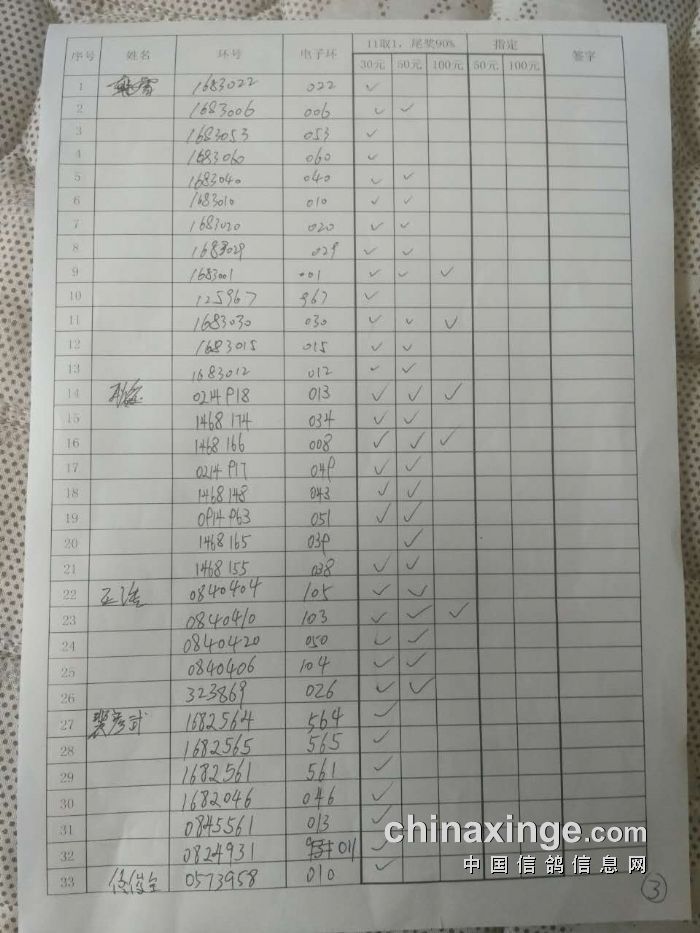 序号 姓名 环号 电子环 11取1，尾奖90% 指定 签字
30元 50元 100元 50元 100元
1 1683022 022 ✓
2 1683006 006 ✓ ✓
3 1683053 053 ✓
4 1683060 060 ✓
5 1683040 040 ✓ ✓
6 1683010 010 ✓ ✓
7 1683020 020 ✓ ✓
8 1683029 029 ✓ ✓
9 1683001 001 ✓ ✓ ✓
10 125967 967 ✓
11 1683030 030 ✓ ✓ ✓
12 1683015 015 ✓ ✓
13 1683012 012 ✓ ✓
14 0214918 013 ✓ ✓ ✓
15 1468174 034 ✓ ✓
16 1468166 008 ✓ ✓ ✓
17 0214917 049 ✓ ✓
18 1468148 043 ✓ ✓
19 0914963 051 ✓ ✓
20 1468165 039 ✓
21 1468155 038 ✓ ✓
22 0840404 105 ✓ ✓
23 0840410 103 ✓ ✓ ✓
24 0840420 050 ✓ ✓
25 0840406 104 ✓ ✓
26 323869 026 ✓ ✓
27 裴彦武 1682564 564 ✓
28 1682565 565 ✓
29 1682561 561 ✓
30 1682046 046 ✓
31 0845561 013 ✓
32 0824931 011 ✓
33 0573958 010 ✓
chinaxinge.com
中国信鸽信息网
3